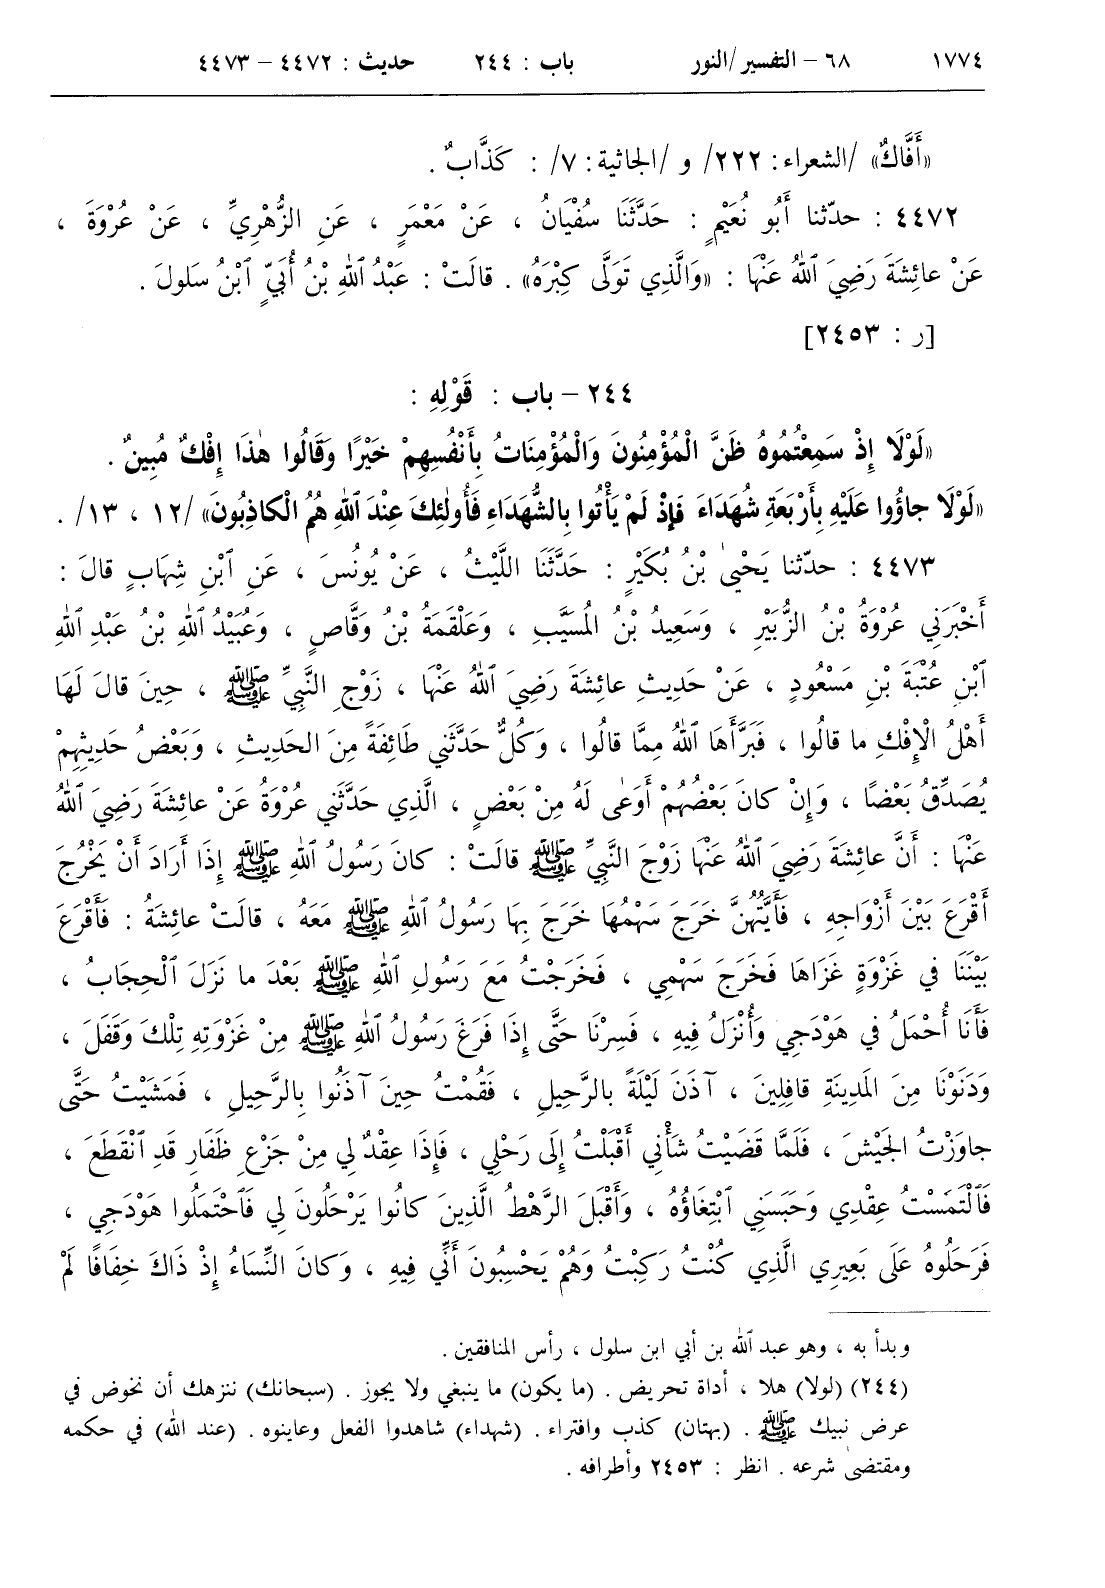 ١٧٧٤ ٦٨ – التفسير /النور باب : ٢٤٤ حديث : ٤٤٧٢ – ٤٤٧٣
«أَفَّاكٌ» /الشعراء: ٢٢٢/ و /الجاثية: ٧/ : كَذَّابٌ .
٤٤٧٢ : حدّثنا أَبُو نُعَيْمٍ : حَدَّثَنَا سُفْيَانُ ، عَنْ مَعْمَرٍ ، عَنِ الزُّهْرِيِّ ، عَنْ عُرْوَةَ ،
عَنْ عائِشَةَ رَضِيَ ٱللهُ عَنْهَا : «وَالَّذِي تَوَلَّى كِبْرَهُ» . قالَتْ : عَبْدُ ٱللهِ بْنُ أُبَيٍّ ٱبْنُ سَلولَ .
[ر : ٢٤٥٣]
٢٤٤ – باب : قَوْلِهِ :
«لَوْلَا إِذْ سَمِعْتُمُوهُ ظَنَّ الْمُؤْمِنُونَ وَالْمُؤْمِنَاتُ بِأَنْفُسِهِمْ خَيْرًا وَقَالُوا هٰذَا إِفْكٌ مُبِينٌ .
«لَوْلَا جاؤُوا عَلَيْهِ بِأَرْبَعَةِ شُهَدَاءَ فَإِذْ لَمْ يَأْتُوا بِالشُّهَدَاءِ فَأُولٰئِكَ عِنْدَ اللهِ هُمُ الْكاذِبُونَ» /١٢ ، ١٣/ .
٤٤٧٣ : حدّثنا يَحْيىٰ بْنُ بُكَيْرٍ : حَدَّثَنَا اللَّيْثُ ، عَنْ يُونُسَ ، عَنِ ٱبْنِ شِهَابٍ قالَ :
أَخْبَرَنِي عُرْوَةُ بْنُ الزُّبَيْرِ ، وَسَعِيدُ بْنُ المُسَيَّبِ ، وَعَلْقَمَةُ بْنُ وَقَّاصٍ ، وَعُبَيْدُ ٱللهِ بْنُ عَبْدِ ٱللهِ
ٱبْنِ عُتْبَةَ بْنِ مَسْعُودٍ ، عَنْ حَدِيثِ عائِشَةَ رَضِيَ ٱللهُ عَنْهَا ، زَوْجِ النَّبِيِّ ﷺ ، حِينَ قالَ لَهَا
أَهْلُ الْإِفْكِ ما قالُوا ، فَبَرَّأَهَا ٱللهُ مِمَّا قالُوا ، وَكُلٌّ حَدَّثَنِي طَائِفَةً مِنَ الحَدِيثِ ، وَبَعْضُ حَدِيثِهِمْ
يُصَدِّقُ بَعْضًا ، وَإِنْ كانَ بَعْضُهُمْ أَوْعَى لَهُ مِنْ بَعْضٍ ، الَّذِي حَدَّثَنِي عُرْوَةُ عَنْ عائِشَةَ رَضِيَ ٱللهُ
عَنْهَا : أَنَّ عائِشَةَ رَضِيَ ٱللهُ عَنْهَا زَوْجَ النَّبِيِّ ﷺ قالَتْ : كانَ رَسُولُ ٱللهِ ﷺ إِذَا أَرَادَ أَنْ يَخْرُجَ
أَقْرَعَ بَيْنَ أَزْوَاجِهِ ، فَأَيَّتُهُنَّ خَرَجَ سَهْمُهَا خَرَجَ بِهَا رَسُولُ ٱللهِ ﷺ مَعَهُ ، قالَتْ عائِشَةُ : فَأَقْرَعَ
بَيْنَنَا في غَزْوَةٍ غَزَاهَا فَخَرَجَ سَهْمِي ، فَخَرَجْتُ مَعَ رَسُولِ ٱللهِ ﷺ بَعْدَ ما نَزَلَ ٱلْحِجَابُ ،
فَأَنَا أُحْمَلُ في هَوْدَجِي وَأُنْزَلُ فِيهِ ، فَسِرْنَا حَتَّى إِذَا فَرَغَ رَسُولُ ٱللهِ ﷺ مِنْ غَزْوَتِهِ تِلْكَ وَقَفَلَ ،
وَدَنَوْنَا مِنَ المَدِينَةِ قافِلِينَ ، آذَنَ لَيْلَةً بالرَّحِيلِ ، فَقُمْتُ حِينَ آذَنُوا بِالرَّحِيلِ ، فَمَشَيْتُ حَتَّى
جاوَزْتُ الجَيْشَ ، فَلَمَّا قَضَيْتُ شَأْنِي أَقْبَلْتُ إِلَى رَحْلِي ، فَإِذَا عِقْدٌ لِي مِنْ جَزْعِ ظَفَارِ قَدِ ٱنْقَطَعَ ،
فَٱلْتَمَسْتُ عِقْدِي وَحَبَسَنِي ٱبْتِغَاؤُهُ ، وَأَقْبَلَ الرَّهْطُ الَّذِينَ كانُوا يَرْحَلُونَ لِي فَٱحْتَمَلُوا هَوْدَجِي ،
فَرَحَلُوهُ عَلَى بَعِيرِي الَّذِي كُنْتُ رَكِبْتُ وَهُمْ يَحْسِبُونَ أَنِّي فِيهِ ، وَكانَ النِّسَاءُ إِذْ ذَاكَ خِفَافًا لَمْ
وبدأ به ، وهو عبد ٱلله بن أبي ابن سلول ، رأس المنافقين .
(٢٤٤) (لولا) هلا ، أداة تحريض . (ما يكون) ما ينبغي ولا يجوز . (سبحانك) ننزهك أن نخوض في
عرض نبيك ﷺ . (بهتان) كذب وافتراء . (شهداء) شاهدوا الفعل وعاينوه . (عند الله) في حكمه
ومقتضىٰ شرعه . انظر : ٢٤٥٣ وأطرافه .